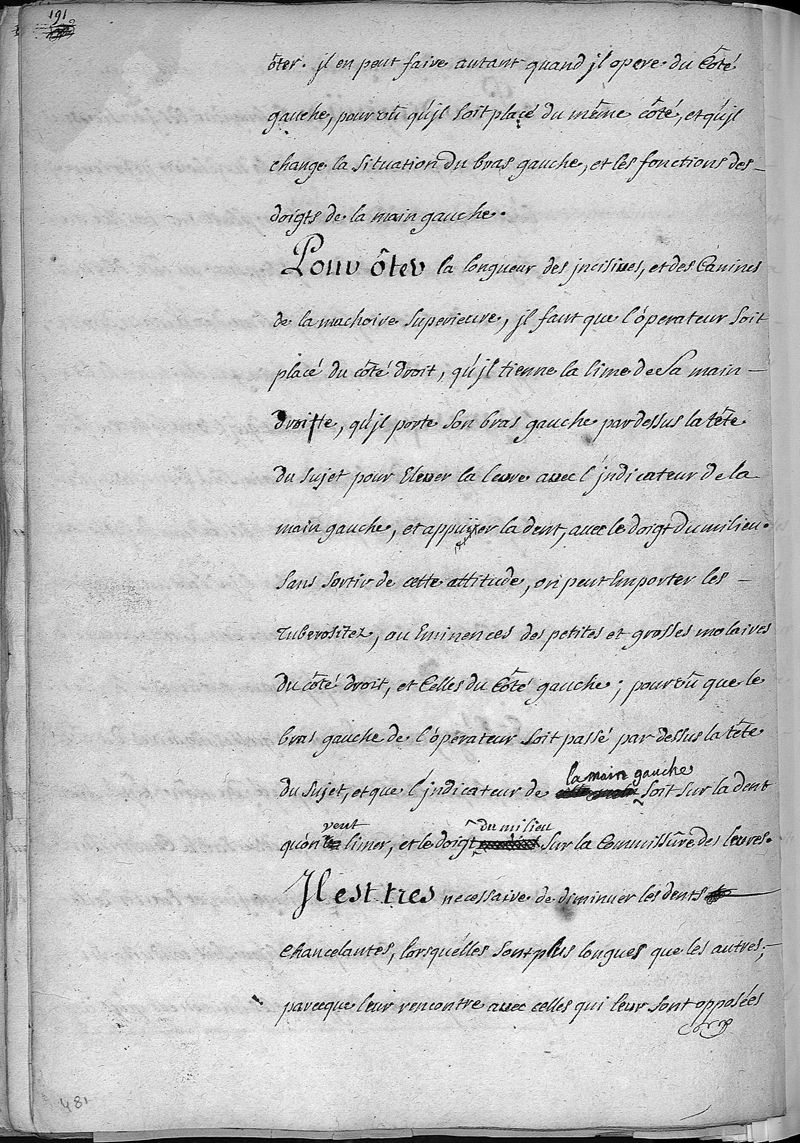 191
ôter. jl en peut faire autant quand jl opere du Côté
gauche, pourvû qu'jl soit placé du même côté, et qu'jl
change la situation du bras gauche, et les fonctions des
doigts de la main gauche.
Pour ôter la longueur des jncisives, et des Canines
de la machoire superieure, jl faut que l'operateur soit
placé du côté droit, qu'jl tienne la lime de sa main
droitte, qu'jl porte son bras gauche par dessus la tête
du sujet pour Elever la levre avec l'jndicateur de la
main gauche, et appuijer la dent, avec le doigt du milieu.
sans sortir de cette attitude, on peut Emporter les
tuberositez, ou Eminences des petites et grosses molaires
du côté droit, et Celles du Côté gauche; pourvû que le
bras gauche de l'opérateur soit passé par dessus la tête
la main gauche
du sujet, et que l'jndicateur de soit sur la dent
veut du milieu
qu'on limer, et le doigt sur la Commissûre des levres.
Jl est tres necessaire de diminuer les dents
chancelantes, lorsquelles sont plus longues que les autres;
parceque leur rencontre avec celles qui leur sont opposées
481